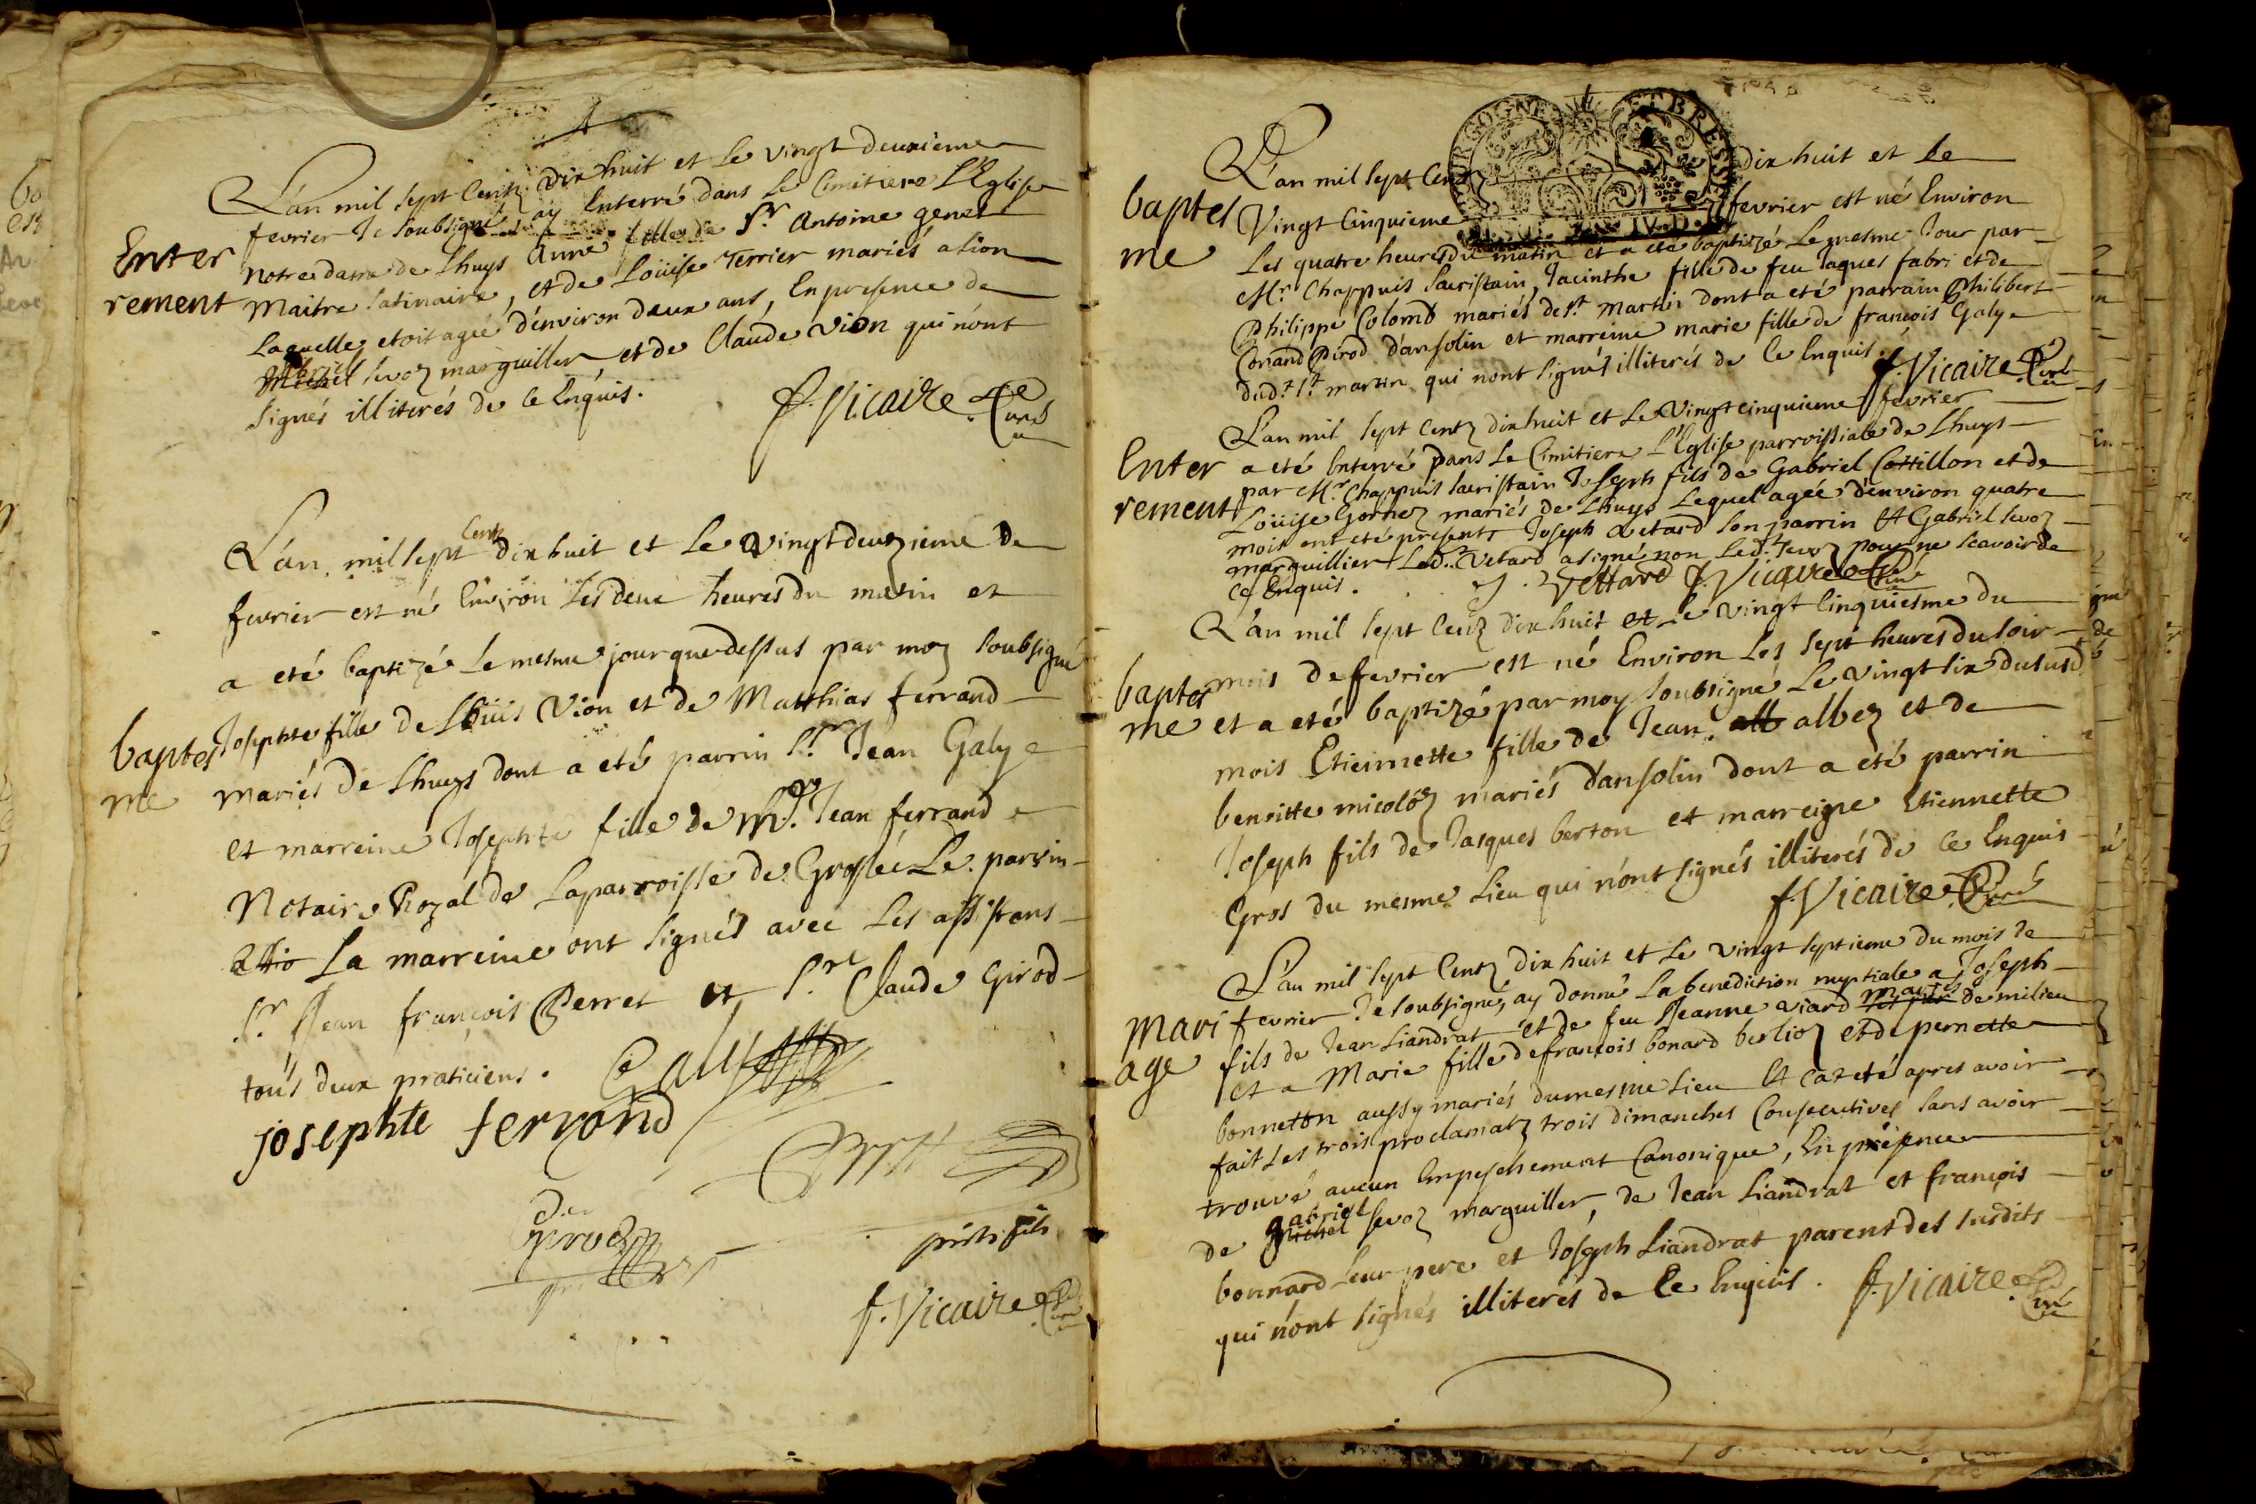 L'an mil sept Centz dix huit et Le vingt deuxieme
fevrier Je soubsigné ay Enterré dans Le Cimitiere L'Eglise
Enter
rement
notre dame de Lhuys Anne fille de Sr Antoine genet
Maitre Satinaire, et de Loüise Terrier mariés a Lion
Laquelle etoit agée d'environ deux ans, En presence de
gabriel Michel sevoz marguiller et de Claude vion qui n'ont
signés illiterés de ce Enquis.
f. Vicaire Curé
L'an mil sept Centz dix huit et Le vingt deuzieme de
fevrier est né Environ Les deux heures du matin et
a eté baptizé Le mesme jour que dessus par moy soubsigné
baptes
me
Josephte fille de Louis Vion et de Matthias ferrand
mariés de Lhuys dont a eté parrin Sr Jean Galy
et marreine Josephte fille de Me. Jean ferrand
Notaire Royal de La parroisse de Groslée Le parrin
La marreine ont signés avec Les assistans
Sr Jean françois Perret et Sr Claude Girod
tous deux praticiens.
josephte ferrand
f. Vicaire Curé
BOURGOGNE ET BRESSE
L'an mil sept Centz dix huit et Le
baptes
me
Vingt Cinquieme fevrier est né Environ
Les quatre heures du matin et a eté baptizé Le mesme Jour par
Mr. Chappuis Sacristain, Jacinthe fille de feu Jaques fabri et de
Philippe Colomb mariés de St. Martin dont a eté parrain Philibert
Conand Pirod d'ansolin et marreine marie fille de francois Galy
dud.t St. martin qui n'ont signés illiterés de ce Enquis.
f. Vicaire Curé
L'an mil sept Centz dix huit et Le Vingt cinquieme fevrier
Enter
rement
a eté Enterré Dans Le Cimitiere L'Eglise parroissiale de Lhuys
par Mr. Chappuis Sacristain Joseph fils de Gabriel Cottillon et de
Loüise Gonnez mariés de Lhuys Lequel agée d'environ quatre
mois ont eté presents Joseph Vetard son parrin et Gabriel sevoz
marguillier Led.t Vetard a signé non Led.t sevoz pour ne scavoir de
ce Enquis.
J. Vettard f. Vicaire Curé
L'an mil sept Centz dix huit et Le vingt Cinquiesme du
baptes
me
mois de fevrier est né Environ Les sept heures du soir
et a eté baptizé par moy soubsigné Le vingt six du susd
mois Etiennette fille de Jean. all albez et de
benoitte micoloz mariés d'ansolin dont a eté parrin
Joseph fils de Jasques berton et marreine Etiennette
Gros du mesme Lieu qui n'ont signés illiterés de ce Enquis
f. Vicaire Curé
L'an mil sept Centz dix huit et Le vingt septieme du mois de
mari
age
fevrier Je soubsigné, ay donné La benediction nuptiale a Joseph
fils de Jean Liandrat et de feu Jeanne viard mariés de milieu
et a Marie fille de francois bonard berlioz et de pernette
bonneton aussy mariés du mesme Lieu Et ca eté apres avoir
fait Les trois proclamatz trois dimanches Consecutives sans avoir
trouvé aucun Empeschement Canonique, En presence
de gabriel Michel sevoz marguiller, de Jean Liandrat et françois
bonnard Leur pere et Joseph Liandrat parent des susdits
qui n'ont signés illiterés de ce Enquis.
f. Vicaire Curé